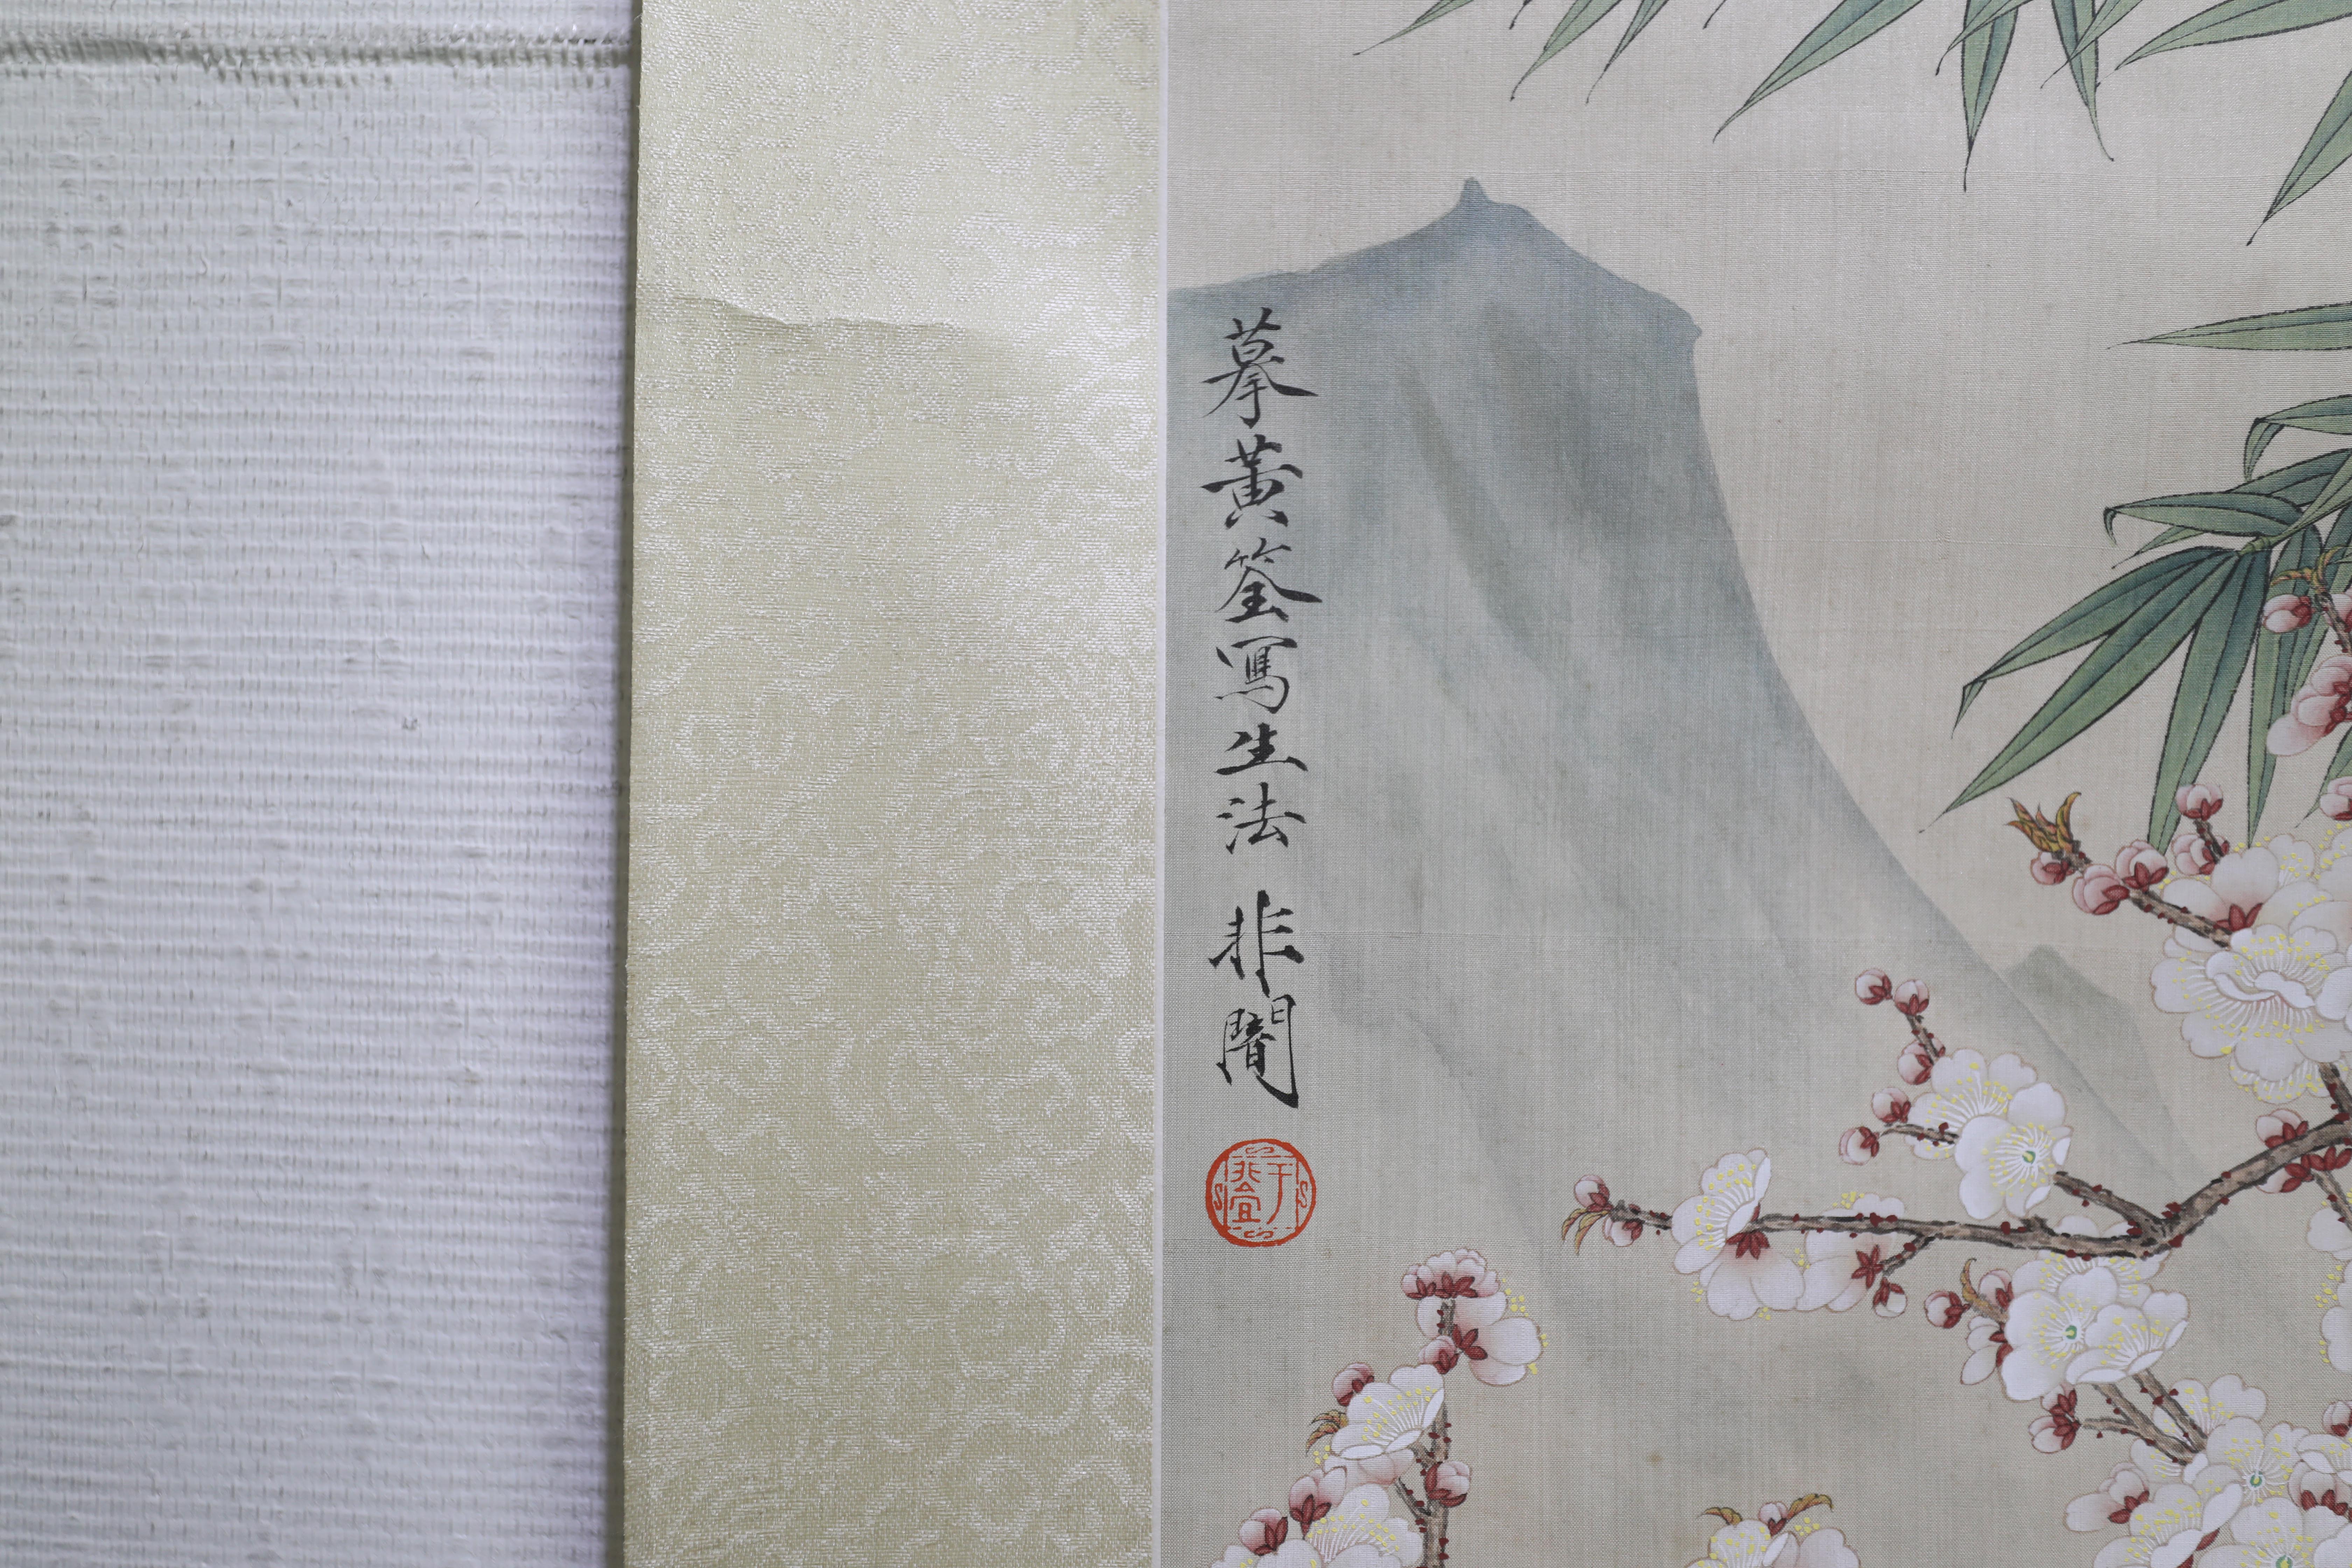 摹黃筌寫生法 非闇
于非